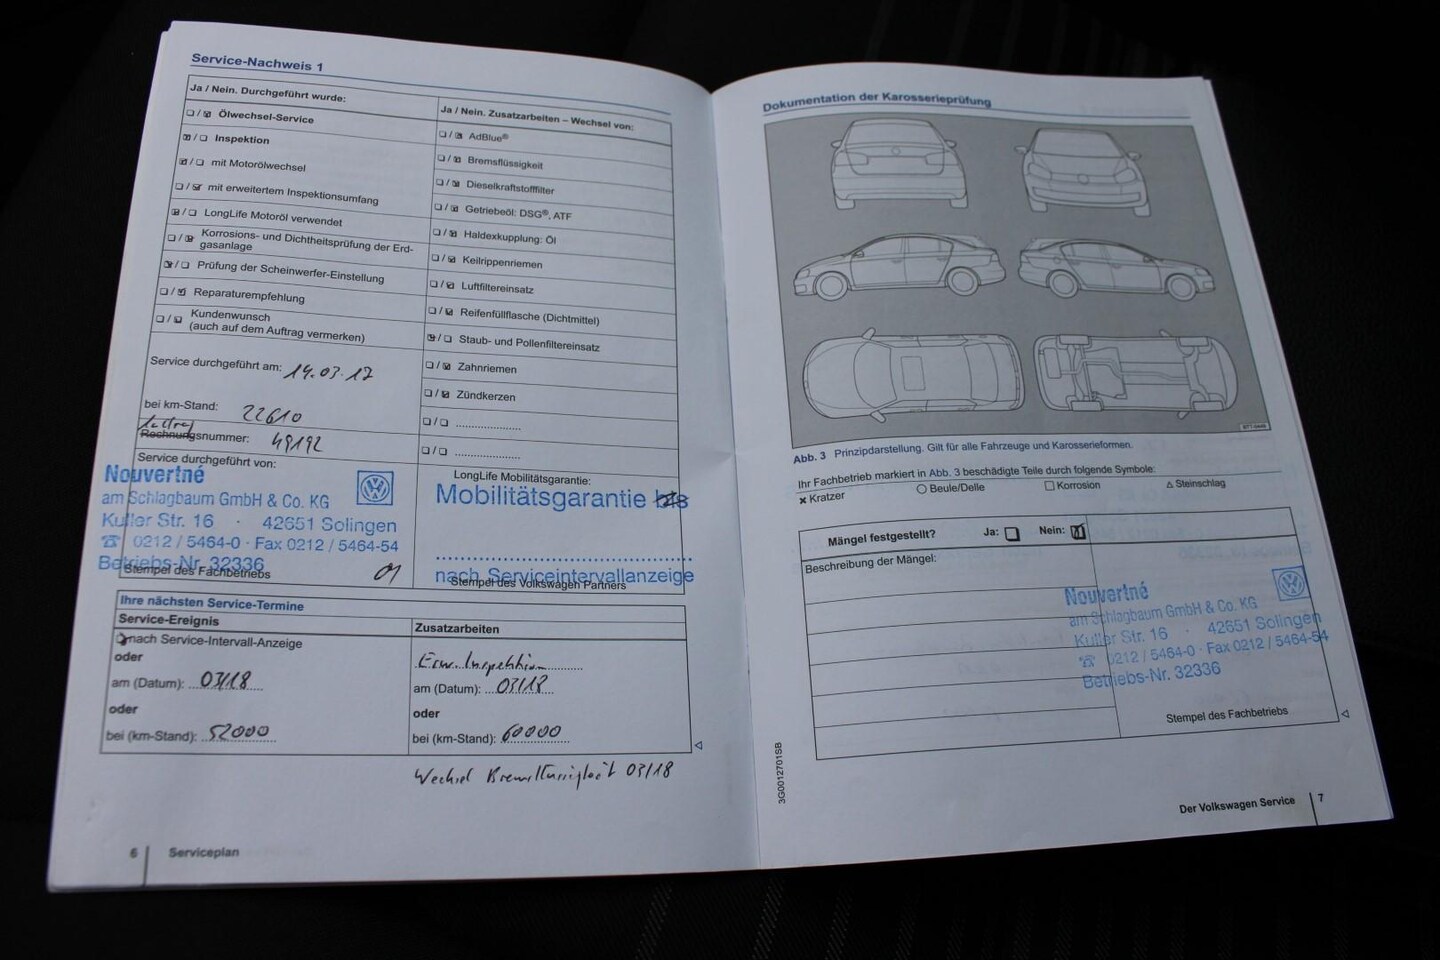 Service-Nachweis 1
Ja / Nein. Durchgeführt wurde:
☐ / ☒ Ölwechsel-Service
☒ / ☐ Inspektion
☒ / ☐ mit Motorölwechsel
☐ / ☒ mit erweitertem Inspektionsumfang
☒ / ☐ LongLife Motoröl verwendet
☐ / ☒ Korrosions- und Dichtheitsprüfung der Erd-
gasanlage
☒ / ☐ Prüfung der Scheinwerfer-Einstellung
☐ / ☒ Reparaturempfehlung
☐ / ☒ Kundenwunsch
(auch auf dem Auftrag vermerken)
Service durchgeführt am: 14.03.17
bei km-Stand: 22610
Rechnungsnummer: 49192
Service durchgeführt von:
Nouvertné
am Schlagbaum GmbH & Co. KG
Kuller Str. 16 · 42651 Solingen
☎ 0212 / 5464-0 · Fax 0212 / 5464-54
Betriebs-Nr. 32336
Stempel des Fachbetriebs
Ja / Nein. Zusatzarbeiten – Wechsel von:
☐ / ☒ AdBlue®
☐ / ☒ Bremsflüssigkeit
☐ / ☒ Dieselkraftstofffilter
☐ / ☒ Getriebeöl: DSG®, ATF
☐ / ☒ Haldexkupplung: Öl
☐ / ☒ Keilrippenriemen
☐ / ☒ Luftfiltereinsatz
☐ / ☒ Reifenfüllflasche (Dichtmittel)
☒ / ☐ Staub- und Pollenfiltereinsatz
☐ / ☒ Zahnriemen
☐ / ☒ Zündkerzen
☐ / ☐ ......................
☐ / ☐ ......................
LongLife Mobilitätsgarantie:
Mobilitätsgarantie bis
nach Serviceintervallanzeige
Stempel des Volkswagen Partners
Ihre nächsten Service-Termine
Service-Ereignis
nach Service-Intervall-Anzeige
oder
am (Datum): 03/18
oder
bei (km-Stand): 52000
Zusatzarbeiten
Erw. Inspektion
am (Datum): 03/18
oder
bei (km-Stand): 60000
Wechsel Bremsflüssigkeit 03/18
6 Serviceplan
Dokumentation der Karosserieprüfung
Abb. 3 Prinzipdarstellung. Gilt für alle Fahrzeuge und Karosserieformen.
Ihr Fachbetrieb markiert in Abb. 3 beschädigte Teile durch folgende Symbole:
× Kratzer ○ Beule/Delle □ Korrosion △ Steinschlag
Mängel festgestellt? Ja: ☐ Nein: ☒
Beschreibung der Mängel:
Nouvertné
am Schlagbaum GmbH & Co. KG
Kuller Str. 16 · 42651 Solingen
☎ 0212 / 5464-0 · Fax 0212 / 5464-54
Betriebs-Nr. 32336
Stempel des Fachbetriebs
3G0012701SB
Der Volkswagen Service 7